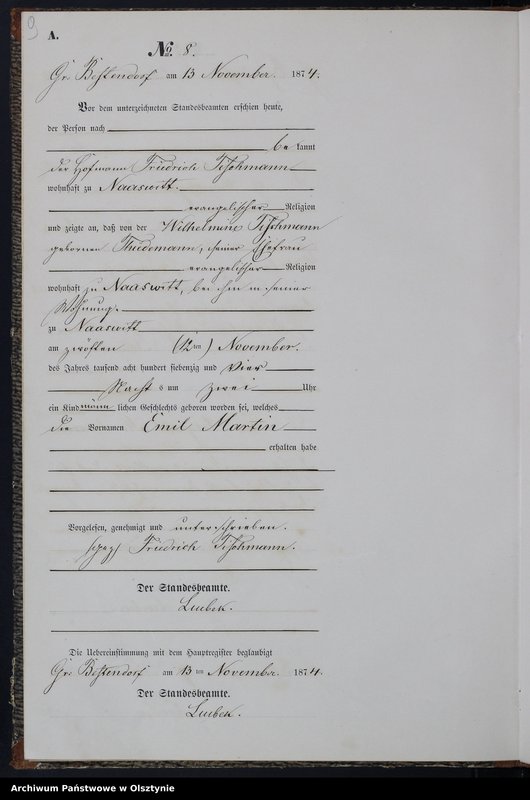 9
A.
No 8.
Gr. Bestendorf am 13 November. 1874.
Vor dem unterzeichneten Standesbeamten erschien heute,
der Person nach
be kannt
der Hofmann Friedrich
wohnhaft zu Naaswitt.
evangelischer Religion
und zeigte an, daß von der Wilhelmine
gebornen Thiedemann, seiner Ehefrau
evangelischer Religion
wohnhaft zu Naaswitt, bei ihm in seiner
Wohnung.
zu Naaswitt
am zwölften (12ten) November.
des Jahres tausend acht hundert siebenzig und vier
Nacht s um zwei Uhr
ein Kind männ lichen Geschlechts geboren worden sei, welches
die Vornamen Emil Martin
erhalten habe
Vorgelesen, genehmigt und unterschrieben.
gez. Friedrich
Der Standesbeamte.
Lubek.
Die Uebereinstimmung mit dem Hauptregister beglaubigt
Gr. Bestendorf am 13ten November. 1874.
Der Standesbeamte.
Lubek.
Archiwum Państwowe w Olsztynie